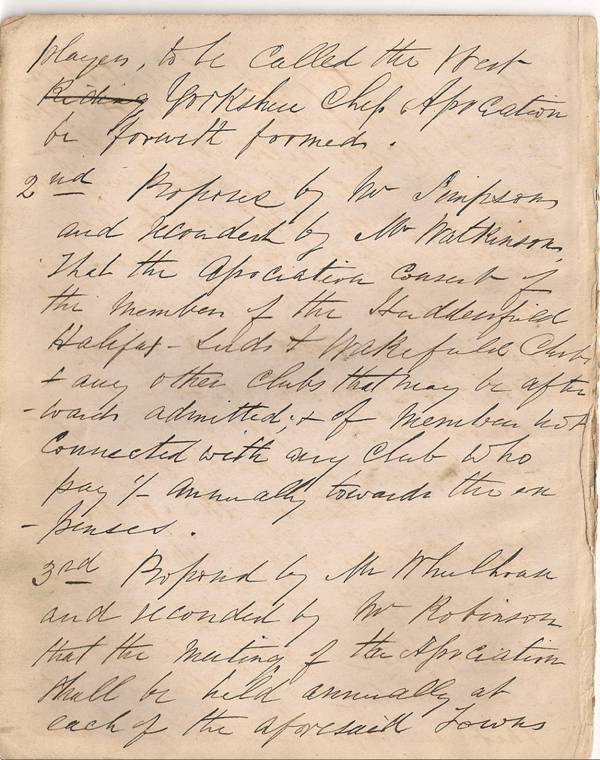 players, to be called the West
Riding Yorkshire Chess Association
be forwith formed.
2nd Proposed by Mr Simpson
and seconded by Mr Watkinson,
That the Association consist of
the Members of the Huddersfield
Halifax - Leeds & Wakefield Clubs
& any other clubs that may be after
-wards admitted; & of Members not
Connected with any Club who
pay 1/- Annually towards the ex
-penses.
3rd Proposed by Mr Wheelhouse
and seconded by Mr Robinson
that the Meeting of the Association
shall be held annually at
each of the aforesaid Towns